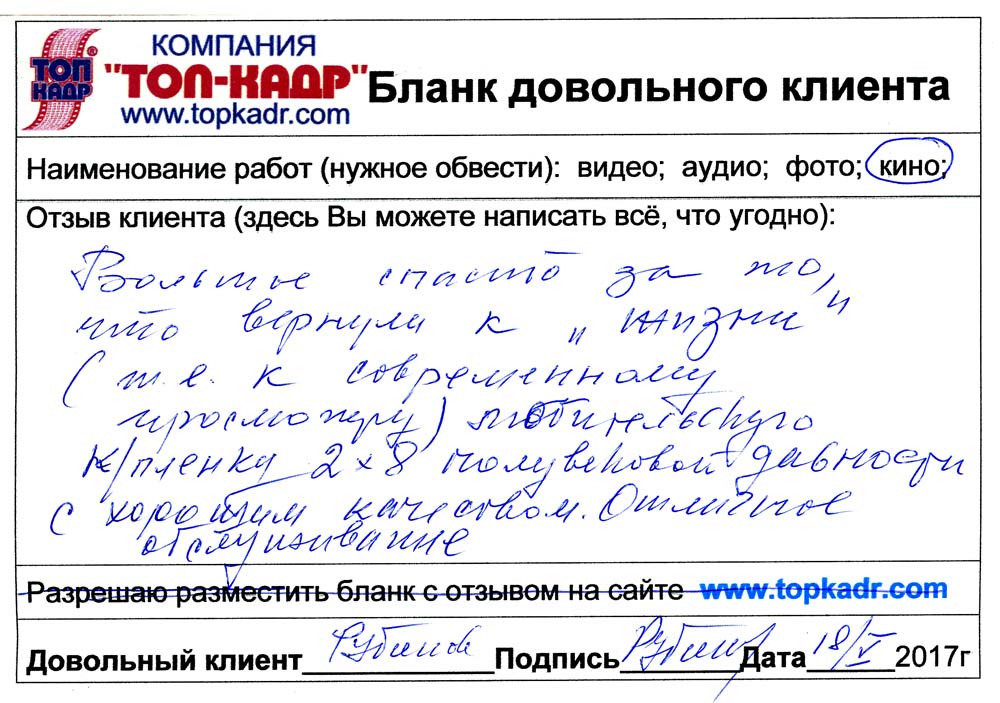 ТОП
КАДР
КОМПАНИЯ
"ТОП-КАДР"
www.topkadr.com
Бланк довольного клиента
Наименование работ (нужное обвести): видео; аудио; фото; кино;
Отзыв клиента (здесь Вы можете написать всё, что угодно):
Большое спасибо за то,
что вернули к „жизни"
(т.е. к современному
просмотру) любительскую
к/пленку 2х8 полувековой давности
с хорошим качеством. Отличное
обслуживание
Разрешаю разместить бланк с отзывом на сайте www.topkadr.com
Довольный клиент Рубинов Подпись Дата 18/V 2017г